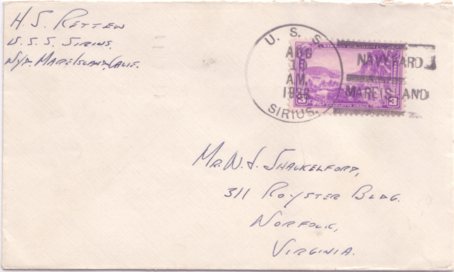 H S Retten
U.S.S. Sirius,
N/Y. Mare Island, Calif.
U. S. S.
AUG
A.M.
SIRIUS.
NAVY YARD
MARE ISLAND
3 3
Mr. W. J. Shackelford,
311 Royster Bldg.
Norfolk,
Virginia.